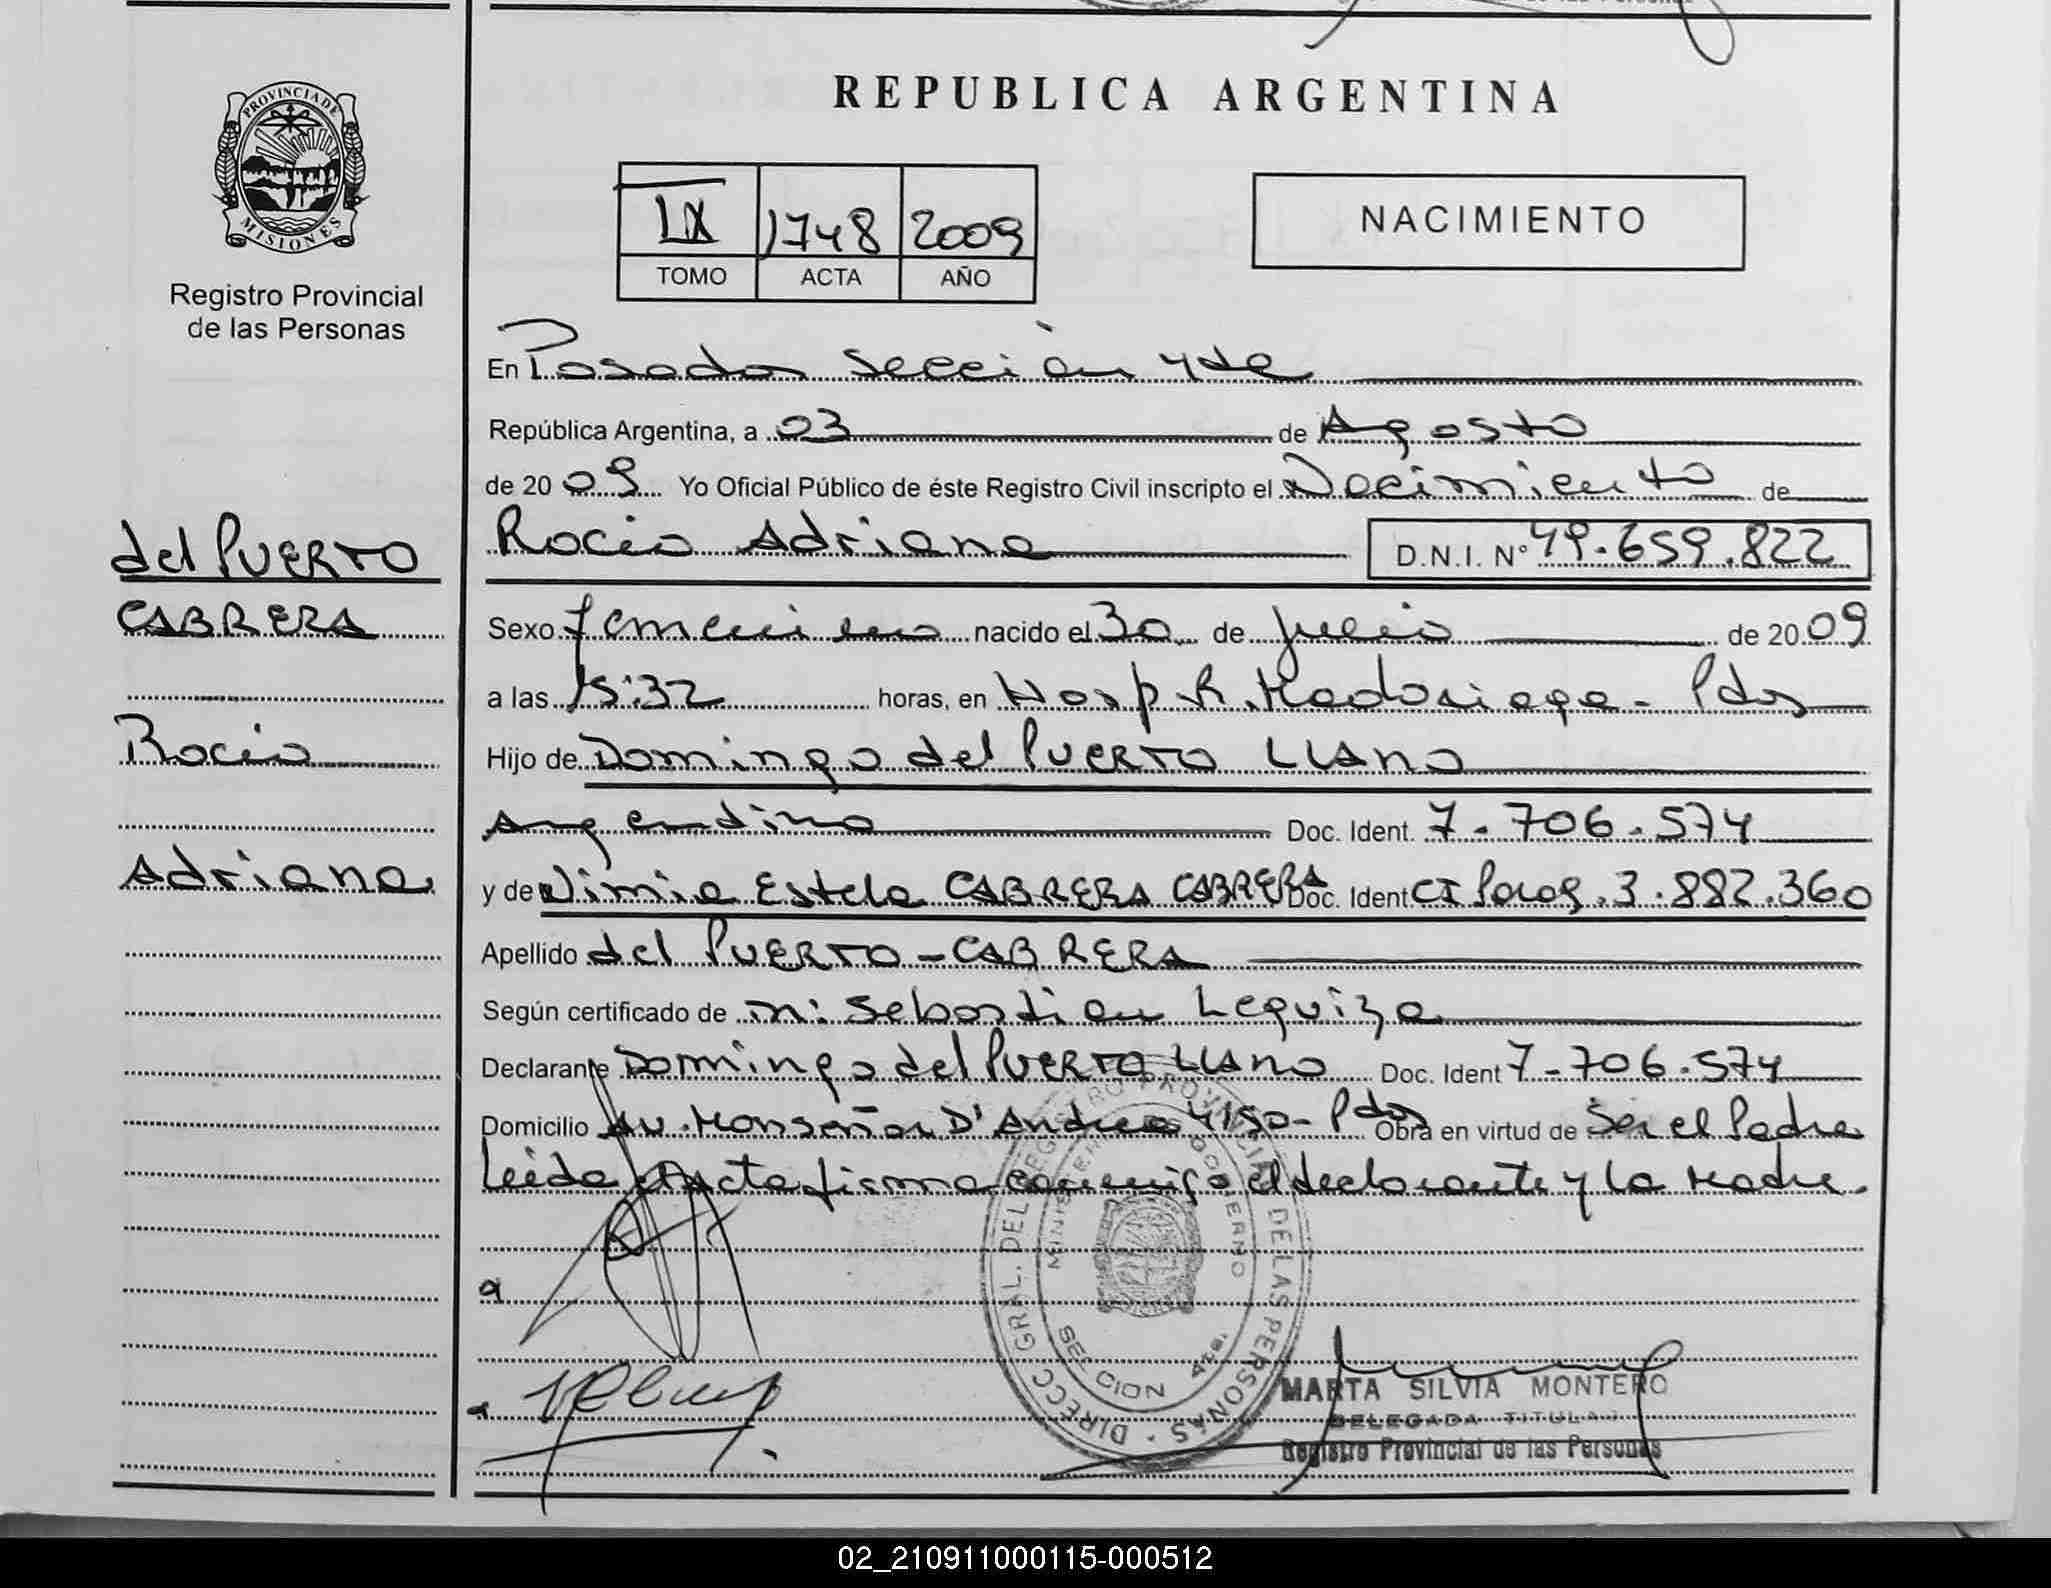 REPUBLICA ARGENTINA
PROVINCIA DE
MISIONES
Registro Provincial
de las Personas
IX 1748 2009
TOMO ACTA AÑO
NACIMIENTO
del PUERTO
CABRERA
Rocío
Adriana
En Posadas Sección 4ta
República Argentina, a 03 de Agosto
de 2009 Yo Oficial Público de éste Registro Civil inscripto el Nacimiento de
Rocío Adriana D.N.I. N° 49.659.822
Sexo femenino nacido el 30 de Julio de 2009
a las 15:32 horas, en Hosp R. Madariaga - Pdas
Hijo de Domingo del PUERTO LLANO
Argentino Doc. Ident. 7.706.574
y de Estela CABRERA CABRERA Doc. Ident CI 3.882.360
Apellido del PUERTO - CABRERA
Según certificado de Sebastian Leguiza
Declarante Domingo del PUERTO LLANO Doc. Ident 7-706.574
Domicilio Av. Monseñor D'Andrea 4150 - Pdas Obra en virtud de Ser el Padre
Leída el Acta firma conmigo el declarante y la Madre.
DIRECC GRAL. DEL REGISTRO PROVINCIAL DE LAS PERSONAS
MINISTERIO GOBIERNO
SECCION 4ta
MARTA SILVIA MONTERO
DELEGADA TITULAR
Registro Provincial de las Personas
02_210911000115-000512